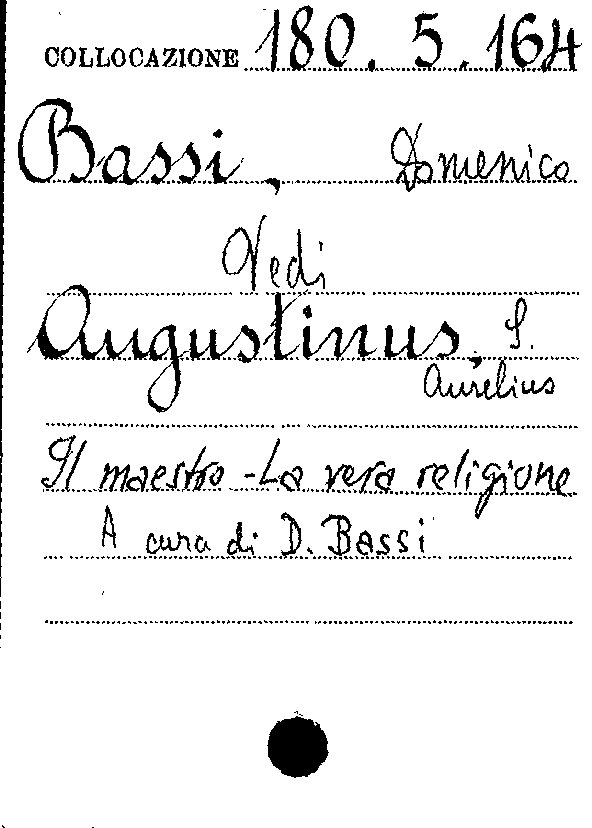 COLLOCAZIONE 180. 5. 164
Bassi, Domenico
Vedi
Augustinus, S.
Aurelius
Il maestro - La vera religione
A cura di D. Bassi